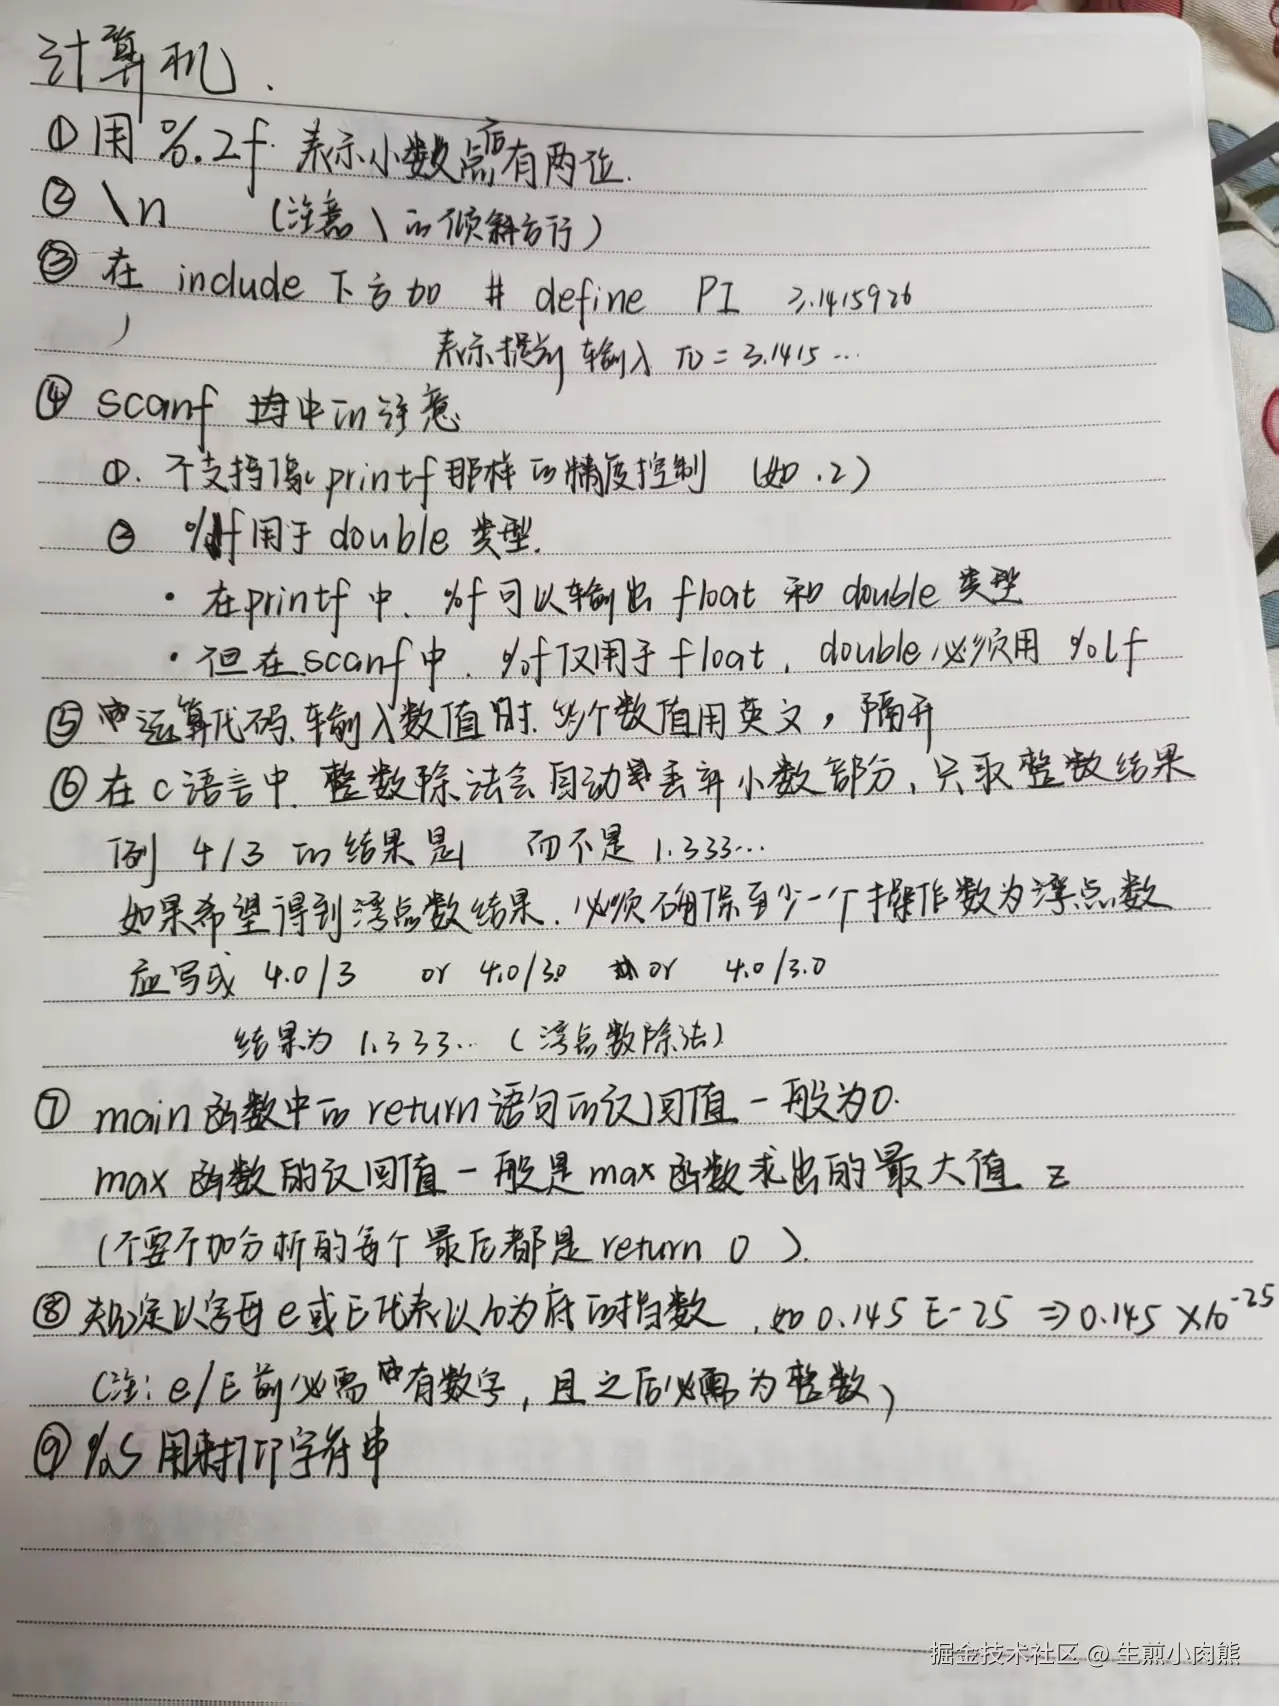 计算机.
①用%.2f.表示小数点后有两位.
② \n (注意\的倾斜方行)
③ 在 include 下方加 # define PI 3.1415926
表示提前输入 π = 3.1415…
④ scanf 中的注意
①. 不支持像 printf 那样的精度控制 (如 .2)
② %lf用于 double 类型.
· 在printf 中, %f可以输出 float 和 double 类型
· 但在scanf中, %f仅用于 float, double必须用 %lf
⑤ 运算代码,输入数值时,每个数值用英文,隔开
⑥ 在 C 语言中, 整数除法会自动丢弃小数部分,只取整数结果
例 4/3 的结果是1 而不是 1.333…
如果希望得到浮点数结果,必须确保至少一个操作数为浮点数
应写成 4.0/3 or 4.0/3.0 or 4.0/3.0
结果为 1.333… (浮点数除法)
⑦ main 函数中的 return 语句的返回值一般为0.
max 函数的返回值一般是 max 函数求出的最大值 z
(不要不加分析的每个最后都是 return 0 ).
⑧ 规定以字母 e或E代表以10为底的指数,如 0.145 E-25 ⇒ 0.145 ×10⁻²⁵
(注: e/E前必需有数字,且之后必需为整数)
⑨ %s 用来打印字符串
掘金技术社区 @ 生煎小肉熊